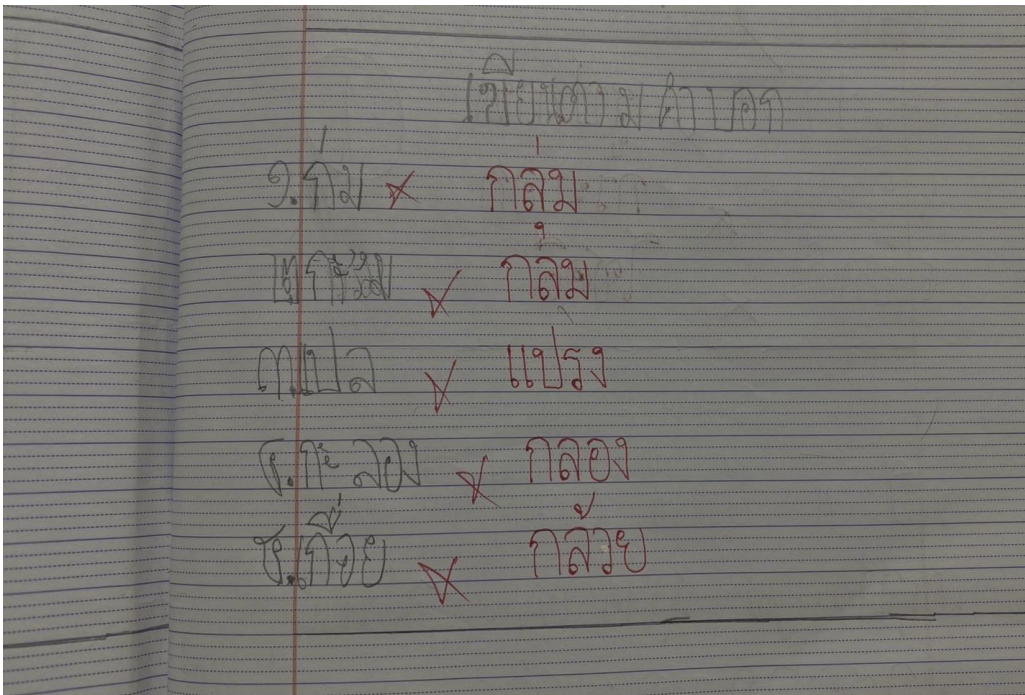 เขียนตามคำบอก
๑. ก่ม กล่ม
กลุ่ม
๓. แปล แปรง
๔. กะลอง กลอง
๕. ก่วย กล้วย